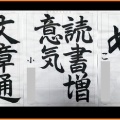 読書増
意気
小
文章通